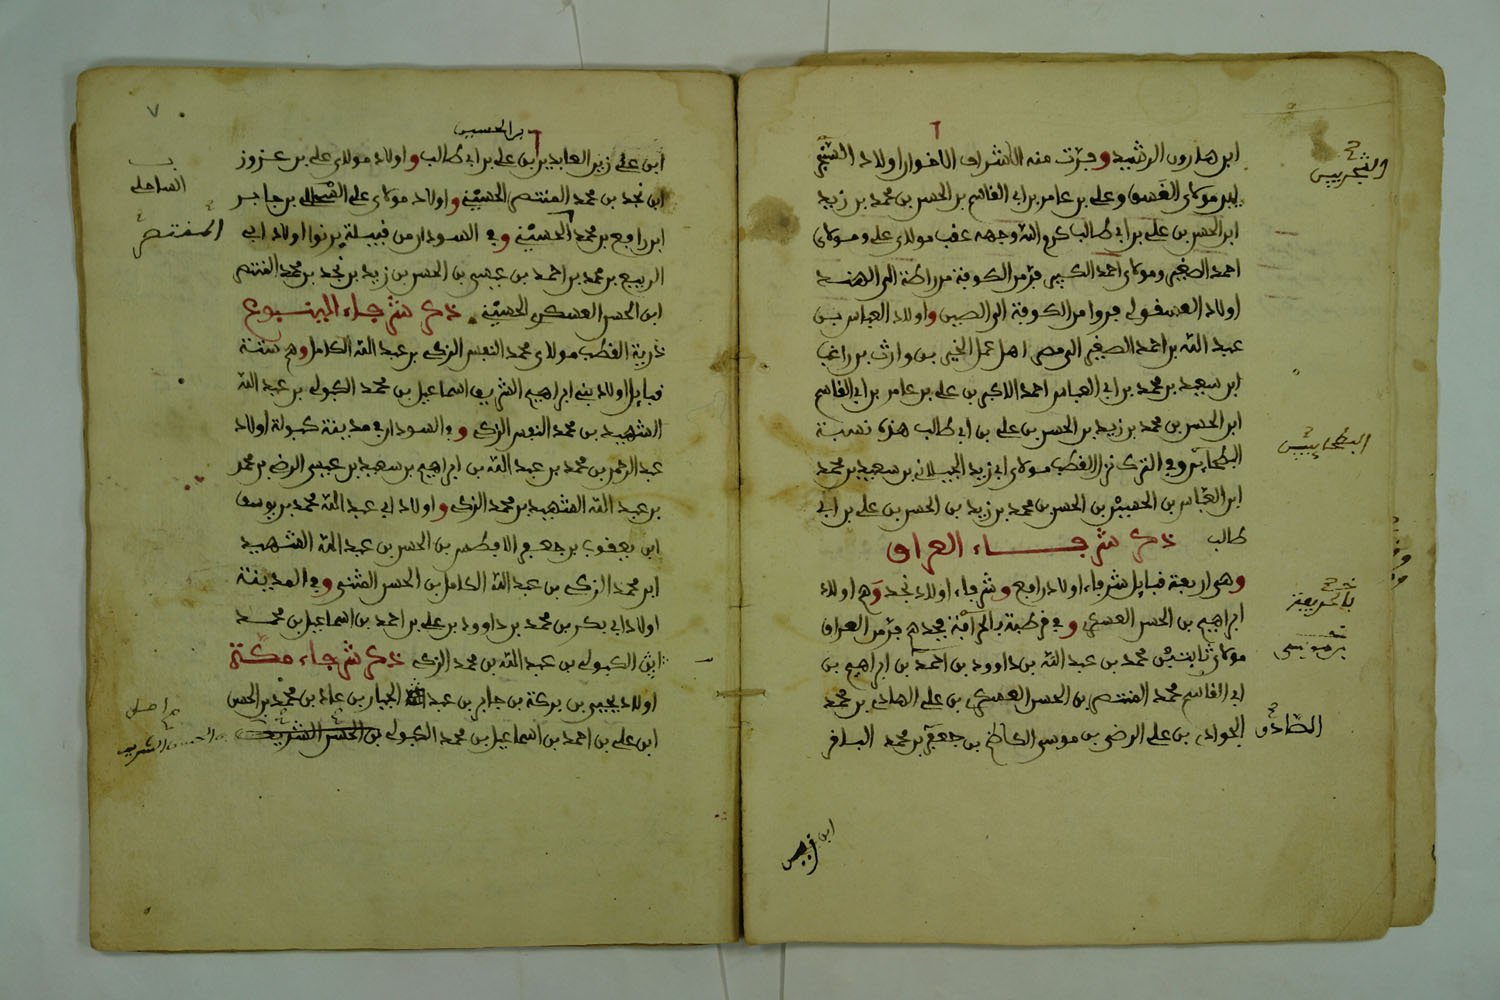 ابن هارون الرشيد وفرت منه الاشراف الاخوار اولاد الشيخ
ابن مولاي الغسق وعلي بن عامر بن ابي القاسم بن الحسن بن محمد بن زيد
ابن الحسن بن علي بن ابي طالب كرم الله وجهه عقب مولاي علي ومولاي
احمد الصغير ومولاي احمد الكبير فر من الكوفة من راطة الى الهند
اولاد العسقولي فروا من الكوفة الى الصين واولاد العباس بن
عبد الله بن احمد الصغير الى مصر اهل عمل الخير بن وارث بن راغب
ابن سعيد بن محمد بن ابي العباس احمد الاكبر بن علي بن عامر بن ابي القاسم
ابن الحسن بن محمد بن زيد بن الحسن بن علي بن ابي طالب هذه نسبة
وفي الترك نزل القطب مولاي ابي زيد الجيلاني بن سعيد بن محمد
ابن العباس بن الحسين بن الحسن بن محمد بن زيد بن الحسن بن علي بن ابي
طالب ذكر شرفاء العراق
وهي اربعة قبايل شرفاء اولاد رافع وشرفاء اولاد نجد وهم اولاد
ابراهيم بن الحسن العسكري وفي قرطبة بالعراق جدهم فر من العراق
مولاي محمد بن عبد الله بن داوود بن احمد بن ابراهيم بن
ابي القاسم محمد المنتصر بن الحسن العسكري بن علي الهادي بن محمد
الجوادي بن علي الرضى بن موسى الكاظم بن جعفر بن محمد الباقر
الطادق
ابن
٧
بن الحسين
ابن علي زين العابدين بن علي بن ابي طالب واولاد مولاي علي بن عزوز
ابن نجد بن محمد المنتصر الحسيني واولاد مولاي علي بن جابر
ابن رافع بن محمد الحسيني وفي السودان من قبيلة برنوا اولاد ابي
الربيع بن محمد بن احمد بن عيسى بن الحسن بن زيد بن نجد بن محمد المنتصر
ابن الحسن العسكري الحسيني ذكر شرفاء الينبوع
ذرية القطب مولاي محمد النفس الزكي بن عبد الله الكامل وهم ستة
قبايل اولاد بني ابراهيم الشريف اسماعيل بن محمد الكبولي بن عبد الله
الشهيد بن محمد النفس الزكي وفي السودان في مدينة كبولة اولاد
عبد الرحمن بن محمد بن عبد الله بن ابراهيم بن سعيد بن عيسى الرضى بن محمد
بن عبد الله الشهيد بن محمد الزكي واولاد ابي عبد الله محمد بن يوسف
ابن يعقوب بن جعفر الافطس بن الحسن بن عبد الله الشهيد
ابن محمد الزكي بن عبد الله الكامل بن الحسن المثنى وفي المدينة
اولاد ابي بكر بن محمد بن داوود بن علي بن احمد بن اسماعيل بن محمد
ابن الكبولي بن عبد الله بن محمد الزكي ذكر شرفاء مكة
اولاد يحيى بن بركة بن جابر بن عبد الجبار بن عاد بن محمد بن الحسن
ابن علي بن احمد بن اسماعيل بن محمد الكبولي
الساحلي
المنتصر